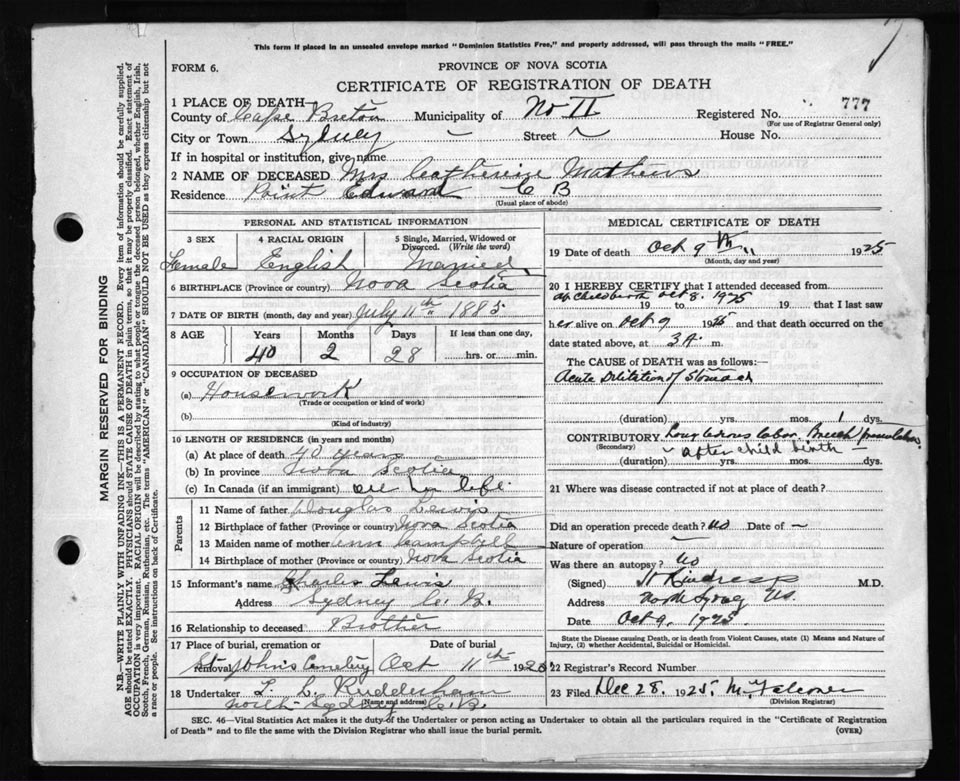 This form if placed in an unsealed envelope marked "Dominion Statistics Free," and properly addressed, will pass through the mails "FREE."
FORM 6.
PROVINCE OF NOVA SCOTIA
CERTIFICATE OF REGISTRATION OF DEATH
1 PLACE OF DEATH—
County of Cape Breton Municipality of No II Registered No. 777
(For use of Registrar General only)
City or Town Sydney — Street ~ House No.
If in hospital or institution, give name
2 NAME OF DECEASED Mrs Catherine Mathews
Residence Point Edward C B
(Usual place of abode)
PERSONAL AND STATISTICAL INFORMATION
3 SEX 4 RACIAL ORIGIN 5 Single, Married, Widowed or Divorced. (Write the word)
Female English Married
6 BIRTHPLACE (Province or country) Nova Scotia
7 DATE OF BIRTH (month, day and year) July 11th 1885
8 AGE Years Months Days If less than one day,
40 2 28 hrs. or min.
9 OCCUPATION OF DECEASED
(a) Housework
(Trade or occupation or kind of work)
(b)
(Kind of industry)
10 LENGTH OF RESIDENCE (in years and months)
(a) At place of death 40 years
(b) In province Nova Scotia
(c) In Canada (if an immigrant) all her life
Parents
11 Name of father Douglas Lewis
12 Birthplace of father (Province or country) Nova Scotia
13 Maiden name of mother Ann Campbell
14 Birthplace of mother (Province or country) Nova Scotia
15 Informant's name Charles Lewis
Address Sydney C. B.
16 Relationship to deceased Brother
17 Place of burial, cremation or removal Date of burial
St John's Cemetery Oct 11th 192
18 Undertaker L. L. Rudderham
(Name and address)
North Sydney C.B.
MEDICAL CERTIFICATE OF DEATH
19 Date of death Oct 9th 1925
(Month, day and year)
20 I HEREBY CERTIFY that I attended deceased from
at childbirth Oct 8. 1925
19 to 19 that I last saw
her alive on Oct 9 1925 and that death occurred on the
date stated above, at 3 A. m.
The CAUSE of DEATH was as follows:—
Acute Dilitation of Stomach
(duration) yrs. mos. 1 dys.
CONTRIBUTORY labor, Breech
(Secondary)
~ after child birth —
(duration) yrs. mos. dys.
21 Where was disease contracted if not at place of death?
Did an operation precede death? No Date of ~
Nature of operation ~
Was there an autopsy? No
(Signed) M.D.
Address North Sydney NS.
Date Oct 9. 1925
State the Disease causing Death, or in death from Violent Causes, state (1) Means and Nature of Injury, (2) whether Accidental, Suicidal or Homicidal.
22 Registrar's Record Number
23 Filed Dec 28. 1925
(Division Registrar)
SEC. 46—Vital Statistics Act makes it the duty of the Undertaker or person acting as Undertaker to obtain all the particulars required in the "Certificate of Registration
of Death" and to file the same with the Division Registrar who shall issue the burial permit.
(OVER)
MARGIN RESERVED FOR BINDING
N.B.—WRITE PLAINLY WITH UNFADING INK—THIS IS A PERMANENT RECORD. Every item of information should be carefully supplied.
AGE should be stated EXACTLY. PHYSICIANS should STATE CAUSE OF DEATH in plain terms, so that it may be properly classified. Exact statement of
OCCUPATION is very important. RACIAL ORIGIN will be described by stating to what people or tongue the deceased person belonged, whether English, Irish,
Scotch, French, German, Russian, Ruthenian, etc. The terms "AMERICAN" or "CANADIAN" SHOULD NOT BE USED as they express citizenship but not
a race or people. See instructions on back of Certificate.